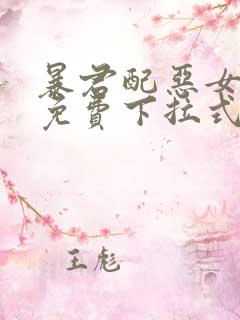 暴君配惡女
免費下拉式
王彪